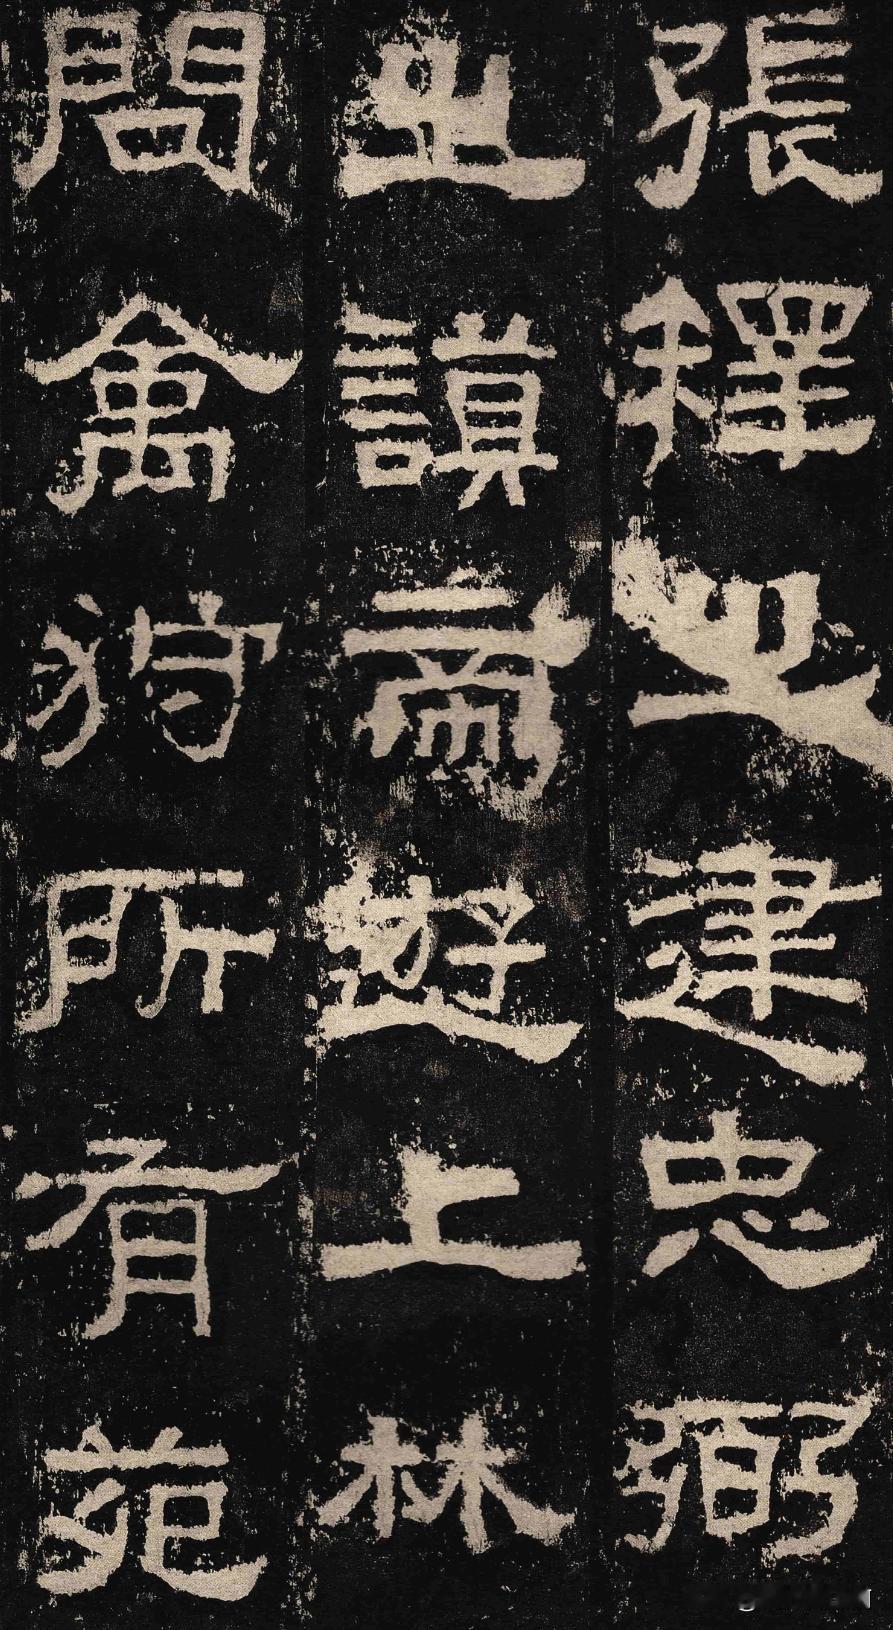 張釋之建忠弼
之謨而遊上林
問禽狩所有苑